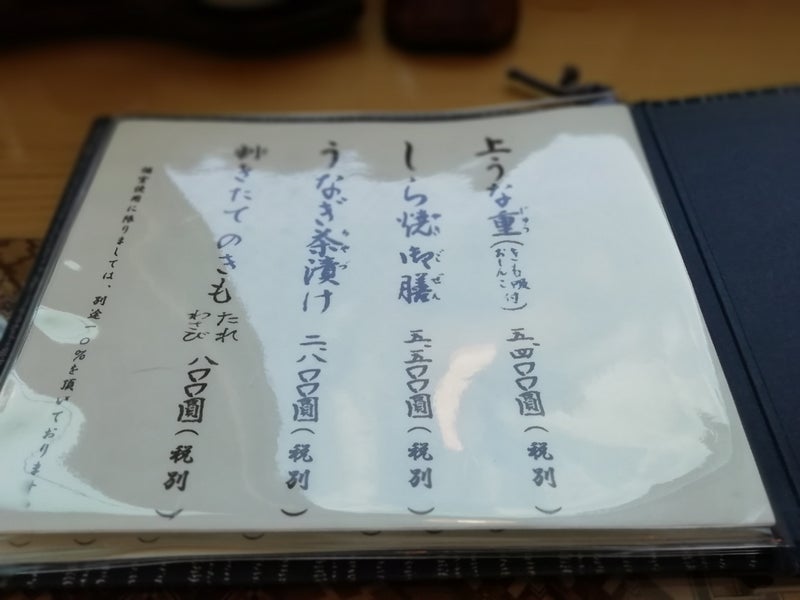 上うな重(きも吸付 おしんこ) 五、四〇〇圓(税別)
しら焼御膳 五、五〇〇圓(税別)
うなぎ茶漬け 二、八〇〇圓(税別)
きたてのきも たれ わさび 八〇〇圓(税別)
個室使用に限りましては、別途一〇%を頂いております。